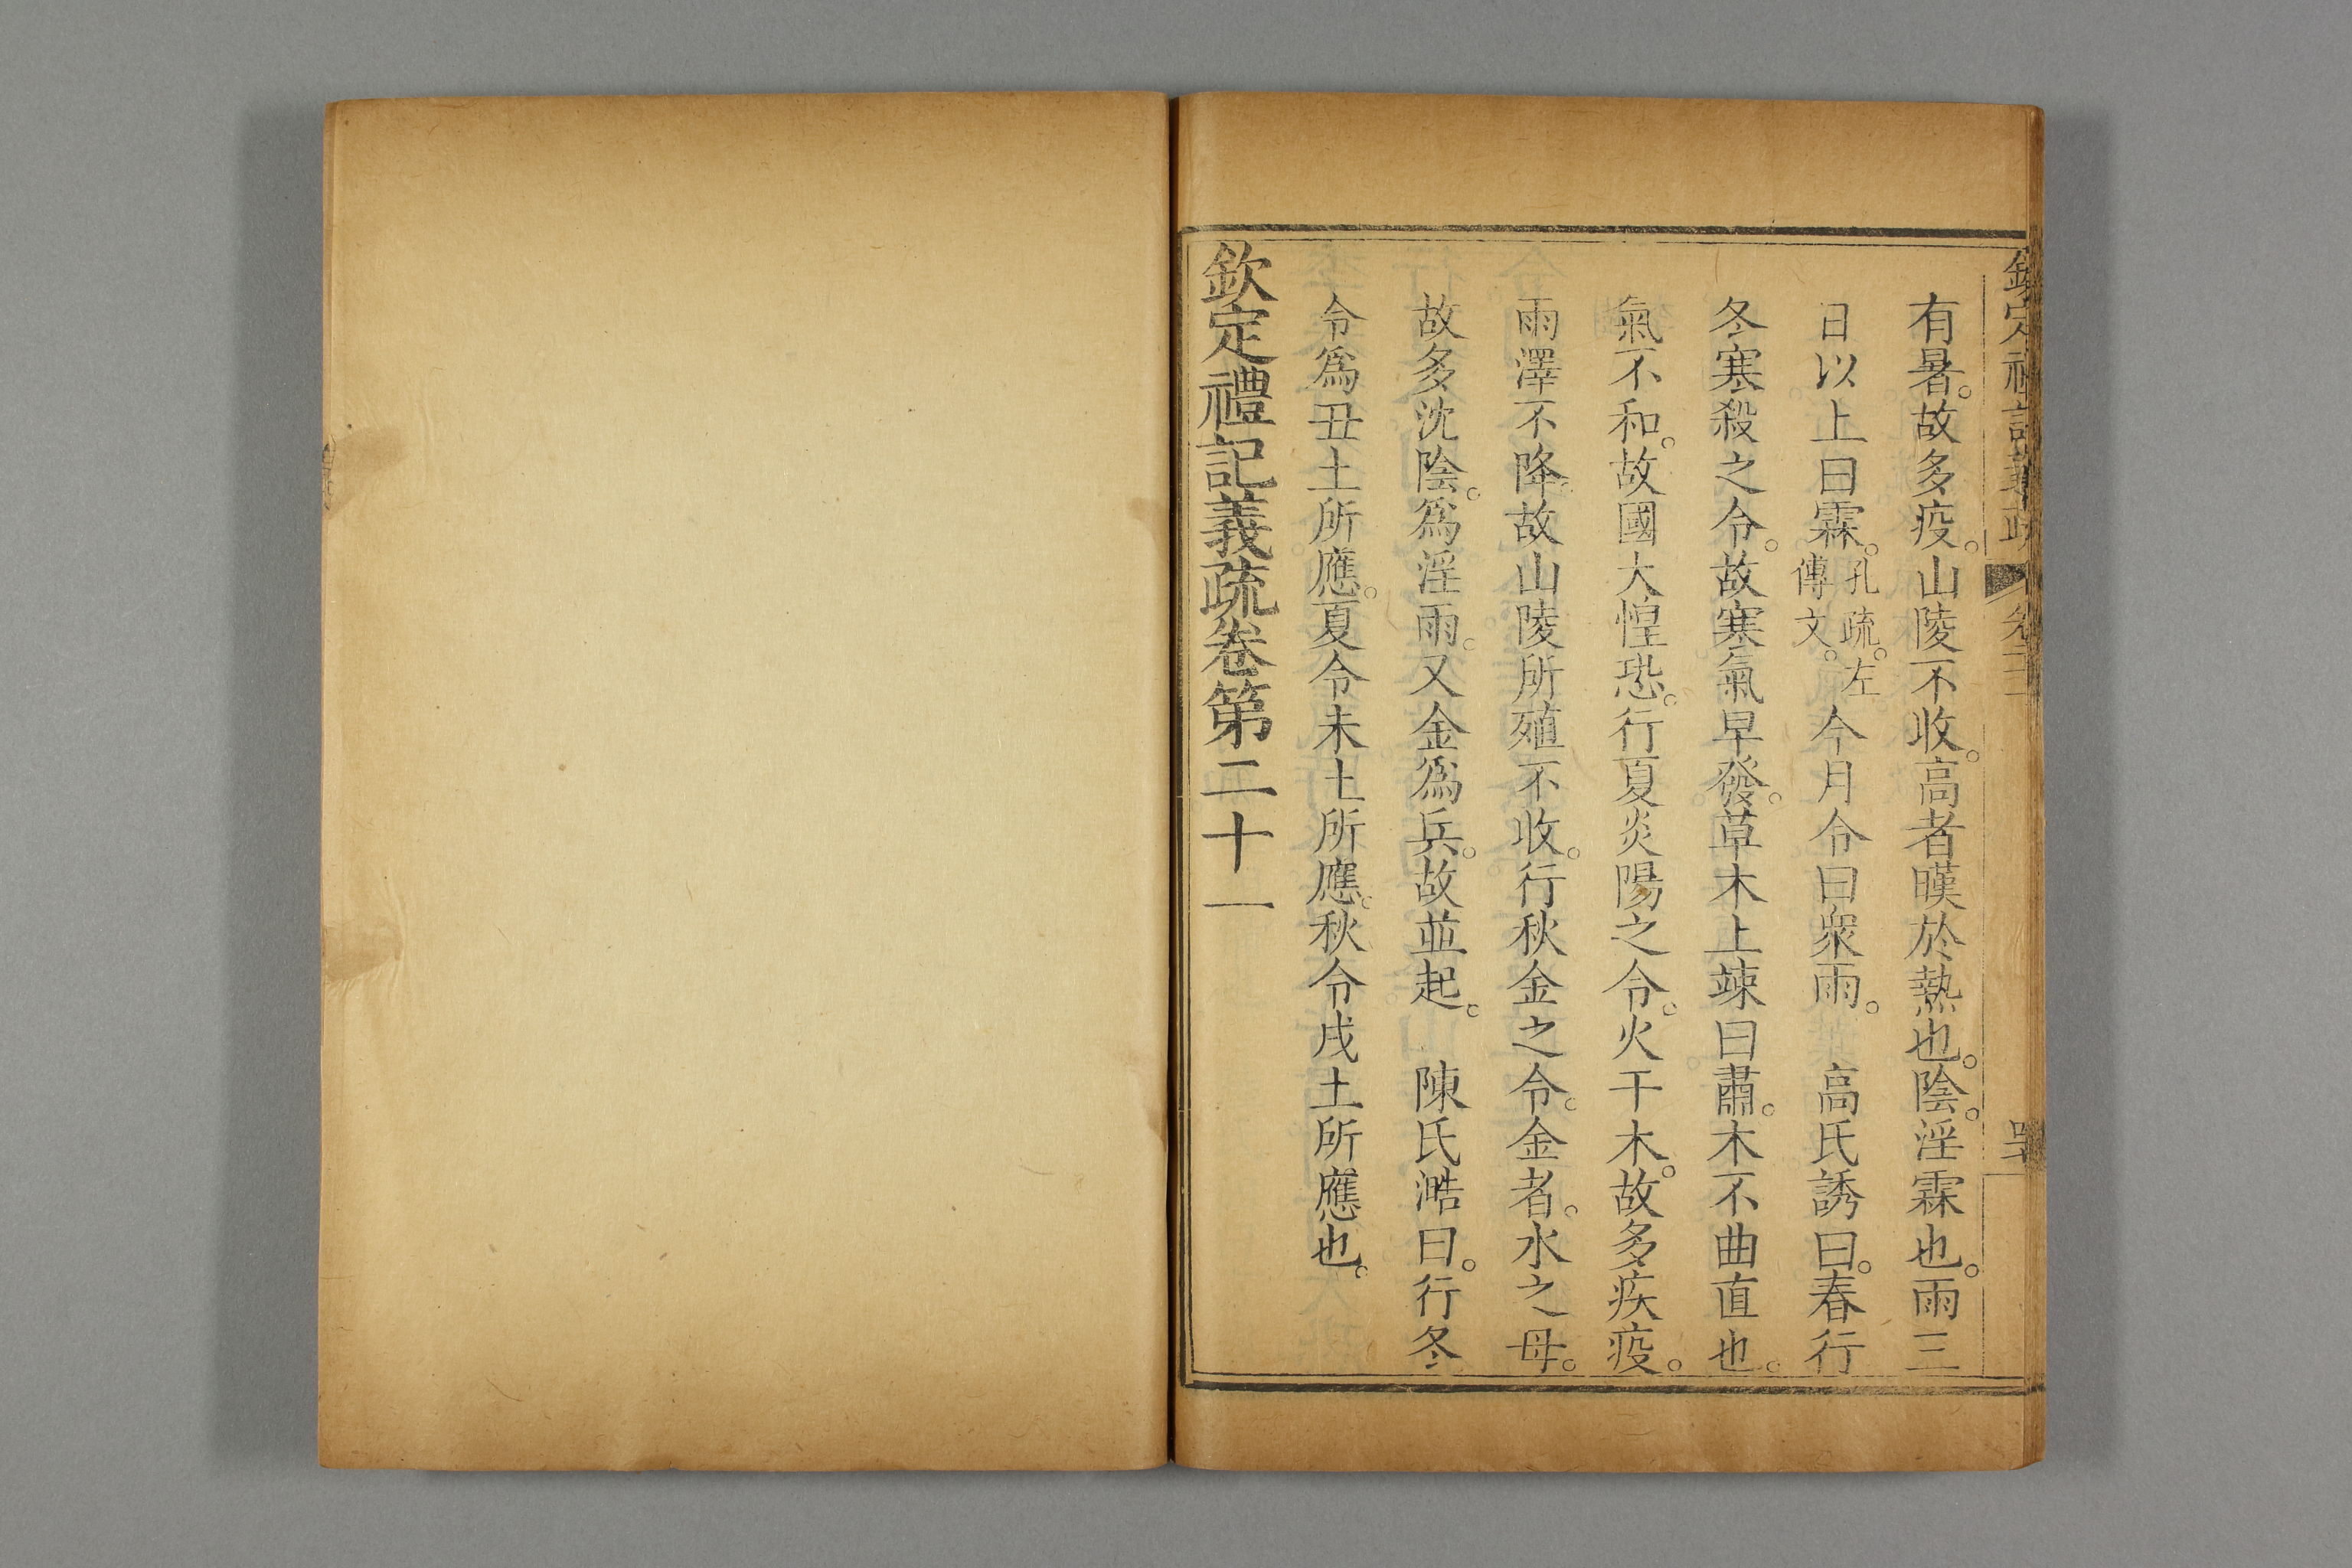 欽定禮記義疏 卷二十一
有暑。故多疫。山陵不收。高者暵於熱也。陰。淫霖也。雨三
日以上曰霖。孔疏。左傳文。今月令曰衆雨。 高氏誘曰。春行
冬寒殺之令。故寒氣早發。草木上竦曰肅。木不曲直也。
氣不和。故國大惶恐。行夏炎陽之令。火干木。故多疾疫。
雨澤不降。故山陵所殖不收。行秋金之令。金者。水之母。
故多沈陰。爲淫雨。又金爲兵。故並起。 陳氏澔曰。行冬
令爲丑土所應。夏令未土所應。秋令戌土所應也。
欽定禮記義疏卷第二十一